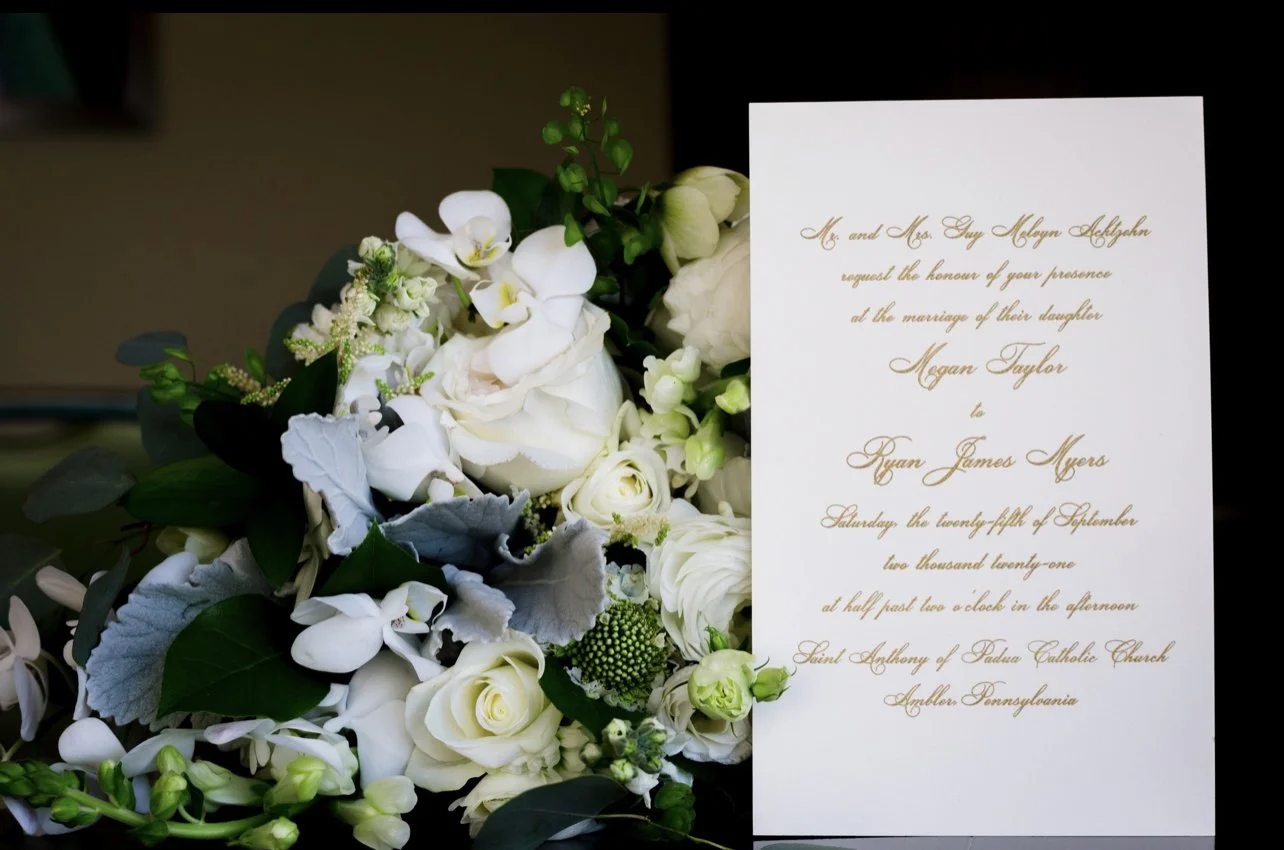 Mr. and Mrs. Guy Melvyn Achtzehn
request the honour of your presence
at the marriage of their daughter
Megan Taylor
to
Ryan James Myers
Saturday, the twenty-fifth of September
two thousand twenty-one
at half past two o'clock in the afternoon
Saint Anthony of Padua Catholic Church
Ambler, Pennsylvania